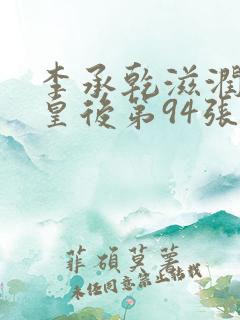 李承乾滋潤
皇後第94張
菲碩莫薯
未经同意禁止转载